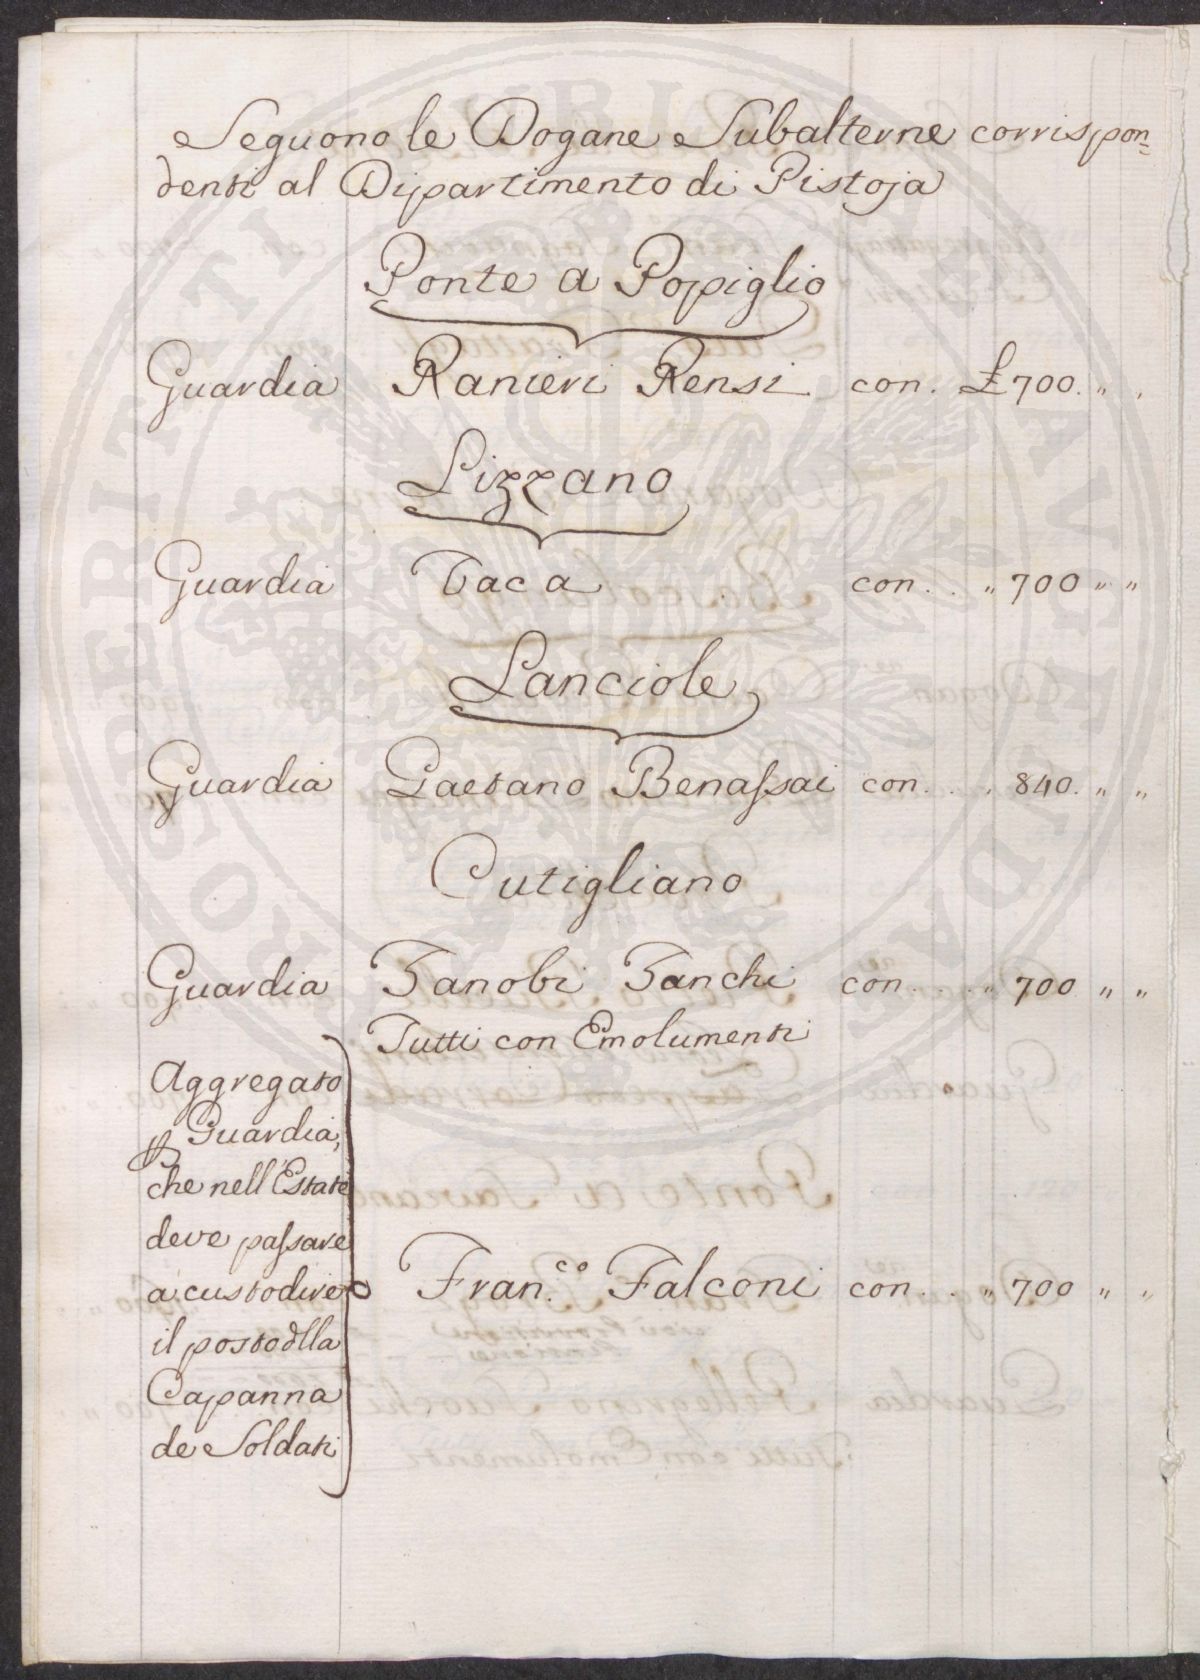 Seguono le Dogane Subalterne corrispon=
denti al Dipartimento di Pistoja
Ponte a Popiglio
Guardia Ranieri Rensi con. £ 700. " "
Lizzano
Guardia Vaca con. . " 700 " "
Lanciole
Guardia Gaetano Benaſsai con. . . 840. " "
Cutigliano
Guardia Zanobi Zanchi con. . . " 700 " "
Tutti con Emolumenti
Aggregato
Guardia,
che nell'Estate
deve paſsare
a custodire
il posto dlla
Capanna
de Soldati
Fran.co Falconi con. . " 700 " "